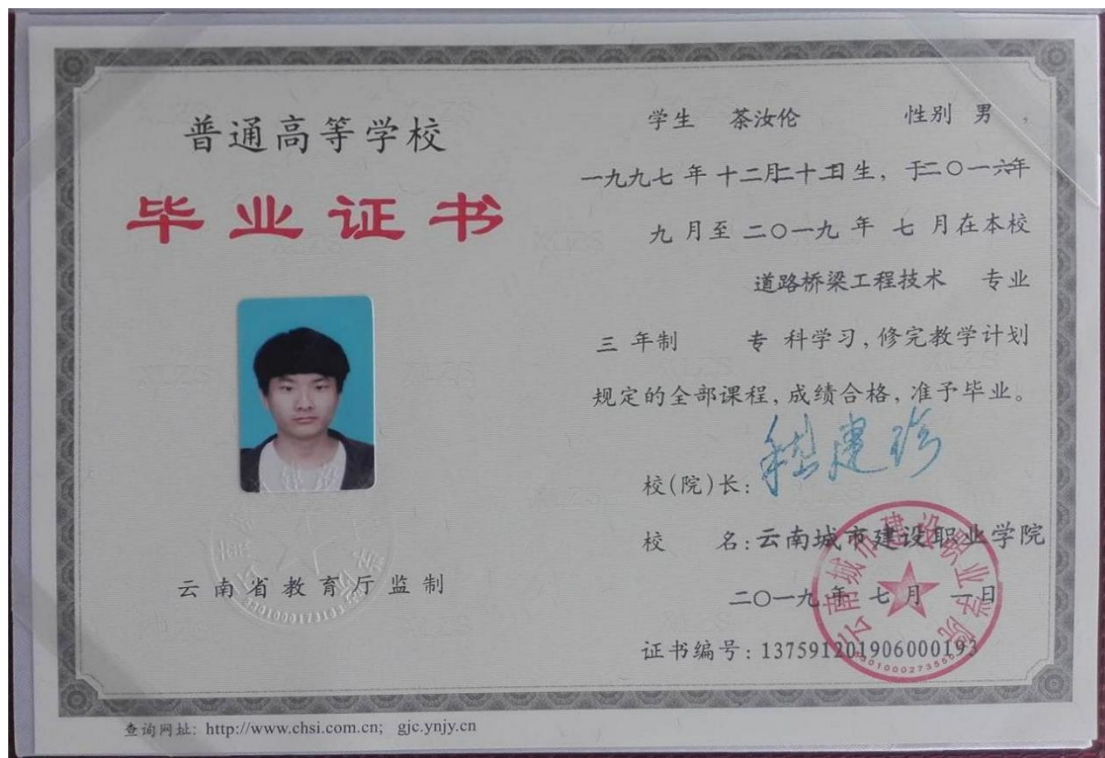 普通高等学校
毕业证书
云南省教育厅监制
学生 茶汝伦 性别 男，
一九九七年十二月二十日生，于二〇一六年
九月至二〇一九年七月在本校
道路桥梁工程技术 专业
三年制 专科学习，修完教学计划
规定的全部课程，成绩合格，准予毕业。
校（院）长：
校 名：云南城市建设职业学院
二〇一九年七月一日
证书编号：137591201906000193
云南城市建设职业学院
查询网址：http://www.chsi.com.cn; gjc.ynjy.cn